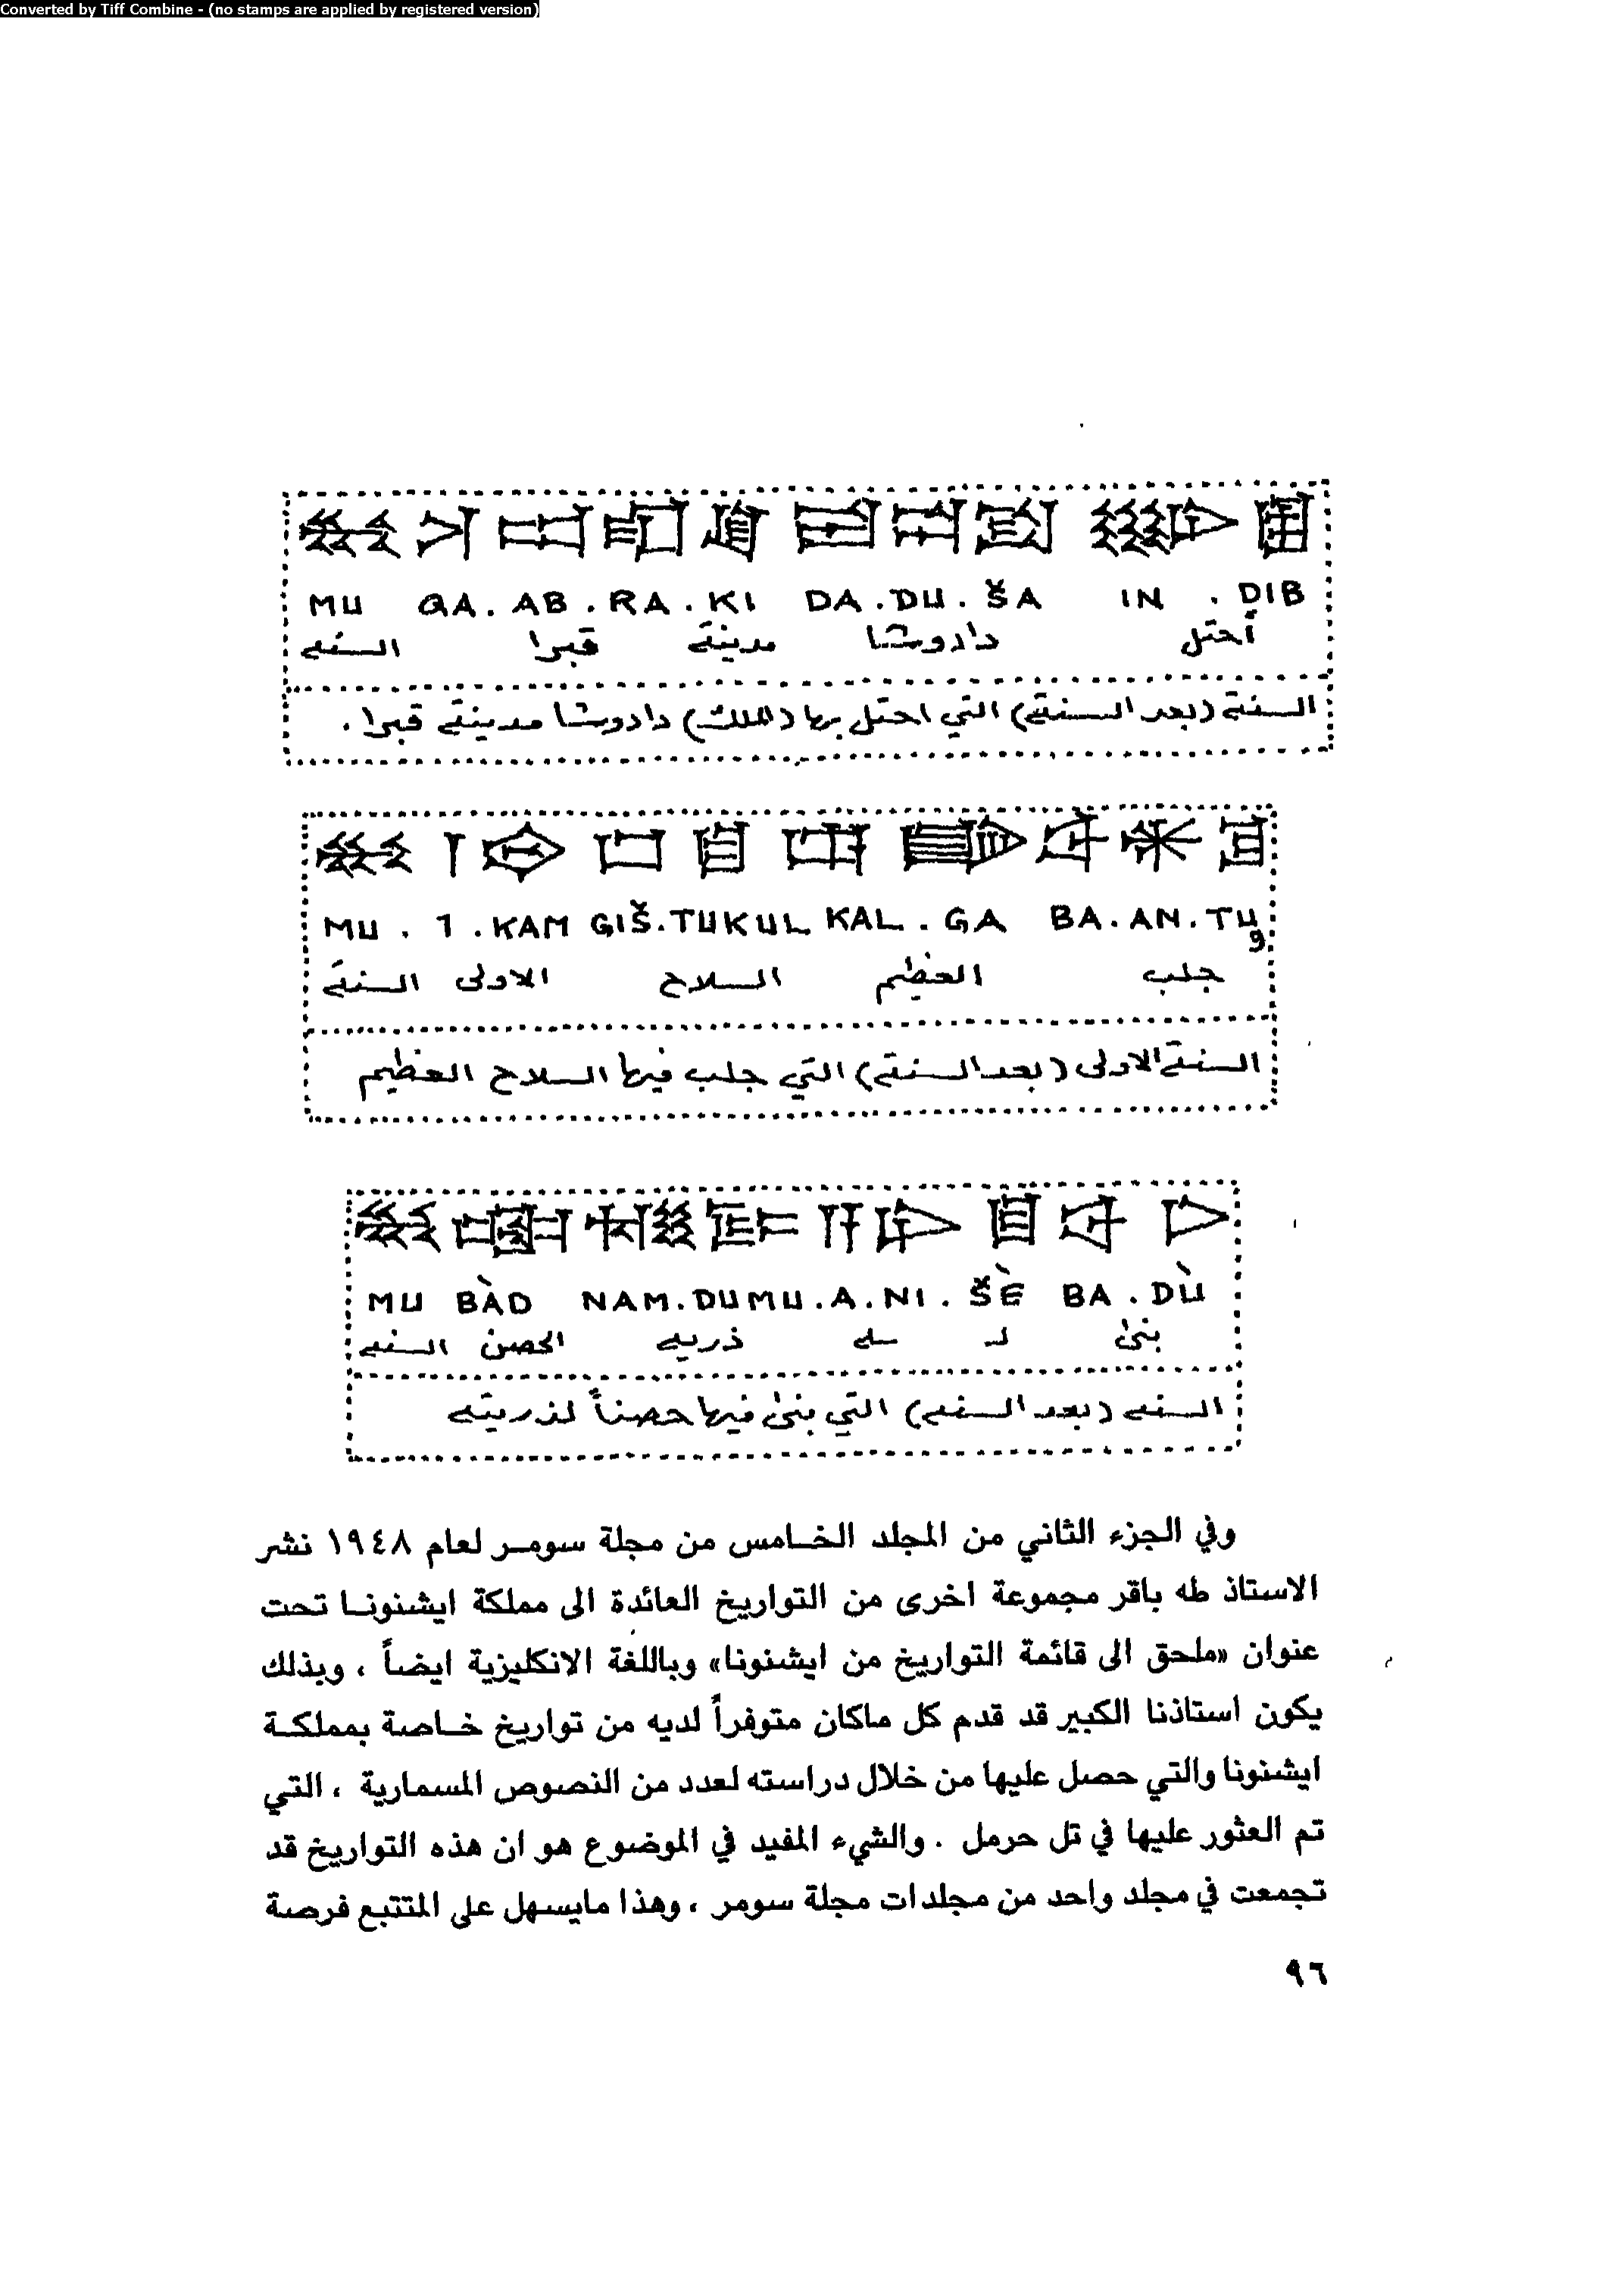 Converted by Tiff Combine - (no stamps are applied by registered version)
MU GA.AB.RA.KI DA.DU.ŠA IN.DIB
السنة قبرا مدينة دادوشا أحتل
السنة (بعد السنة) التي احتل بها (الملك) دادوشا مدينة قبرا .
MU.1.KAM GIŠ.TUKUL KAL.GA BA.AN.TUg
السنة الاولى السلاح العظيم جلب
السنة الاولى (بعد السنة) التي جلب فيها السلاح العظيم
MU BÀD NAM.DUMU.A.NI.ŠÈ BA.DÙ
السنه الحصن ذريه ـه لـ بنى
السنه (بعد السنه) التي بنى فيها حصناً لذريته
وفي الجزء الثاني من المجلد الخامس من مجلة سومر لعام ١٩٤٨ نشر
الاستاذ طه باقر مجموعة اخرى من التواريخ العائدة الى مملكة ايشنونا تحت
عنوان «ملحق الى قائمة التواريخ من ايشنونا» وباللغة الانكليزية ايضاً ، وبذلك
يكون استاذنا الكبير قد قدم كل ماكان متوفراً لديه من تواريخ خاصة بمملكة
ايشنونا والتي حصل عليها من خلال دراسته لعدد من النصوص المسمارية ، التي
تم العثور عليها في تل حرمل . والشيء المفيد في الموضوع هو ان هذه التواريخ قد
تجمعت في مجلد واحد من مجلدات مجلة سومر ، وهذا مايسهل على المتتبع فرصة
٩٦